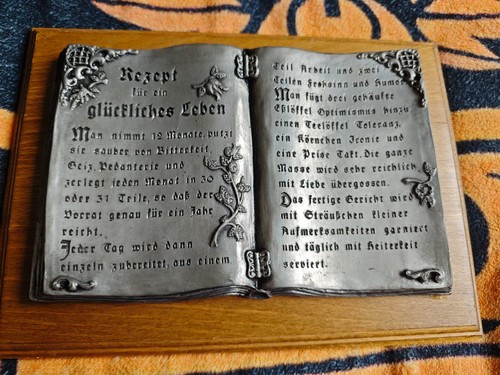 Rezept
für ein
glückliches Leben
Man nimmt 12 Monate, putzt
sie sauber von Bitterkeit,
Geiz, Pedanterie und
zerlegt jeden Monat in 30
oder 31 Teile, so daß der
Vorrat genau für ein Jahr
reicht.
Jeder Tag wird dann
einzeln zubereitet, aus einem
Teil Arbeit und zwei
Teilen Frohsinn und Humor.
Man fügt drei gehäufte
Eßlöffel Optimismus hinzu
einen Teelöffel Toleranz,
ein Körnchen Ironie und
eine Prise Takt. Die ganze
Masse wird sehr reichlich
mit Liebe übergossen.
Das fertige Gericht wird
mit Sträußchen kleiner
Aufmerksamkeiten garniert
und täglich mit Heiterkeit
serviert.